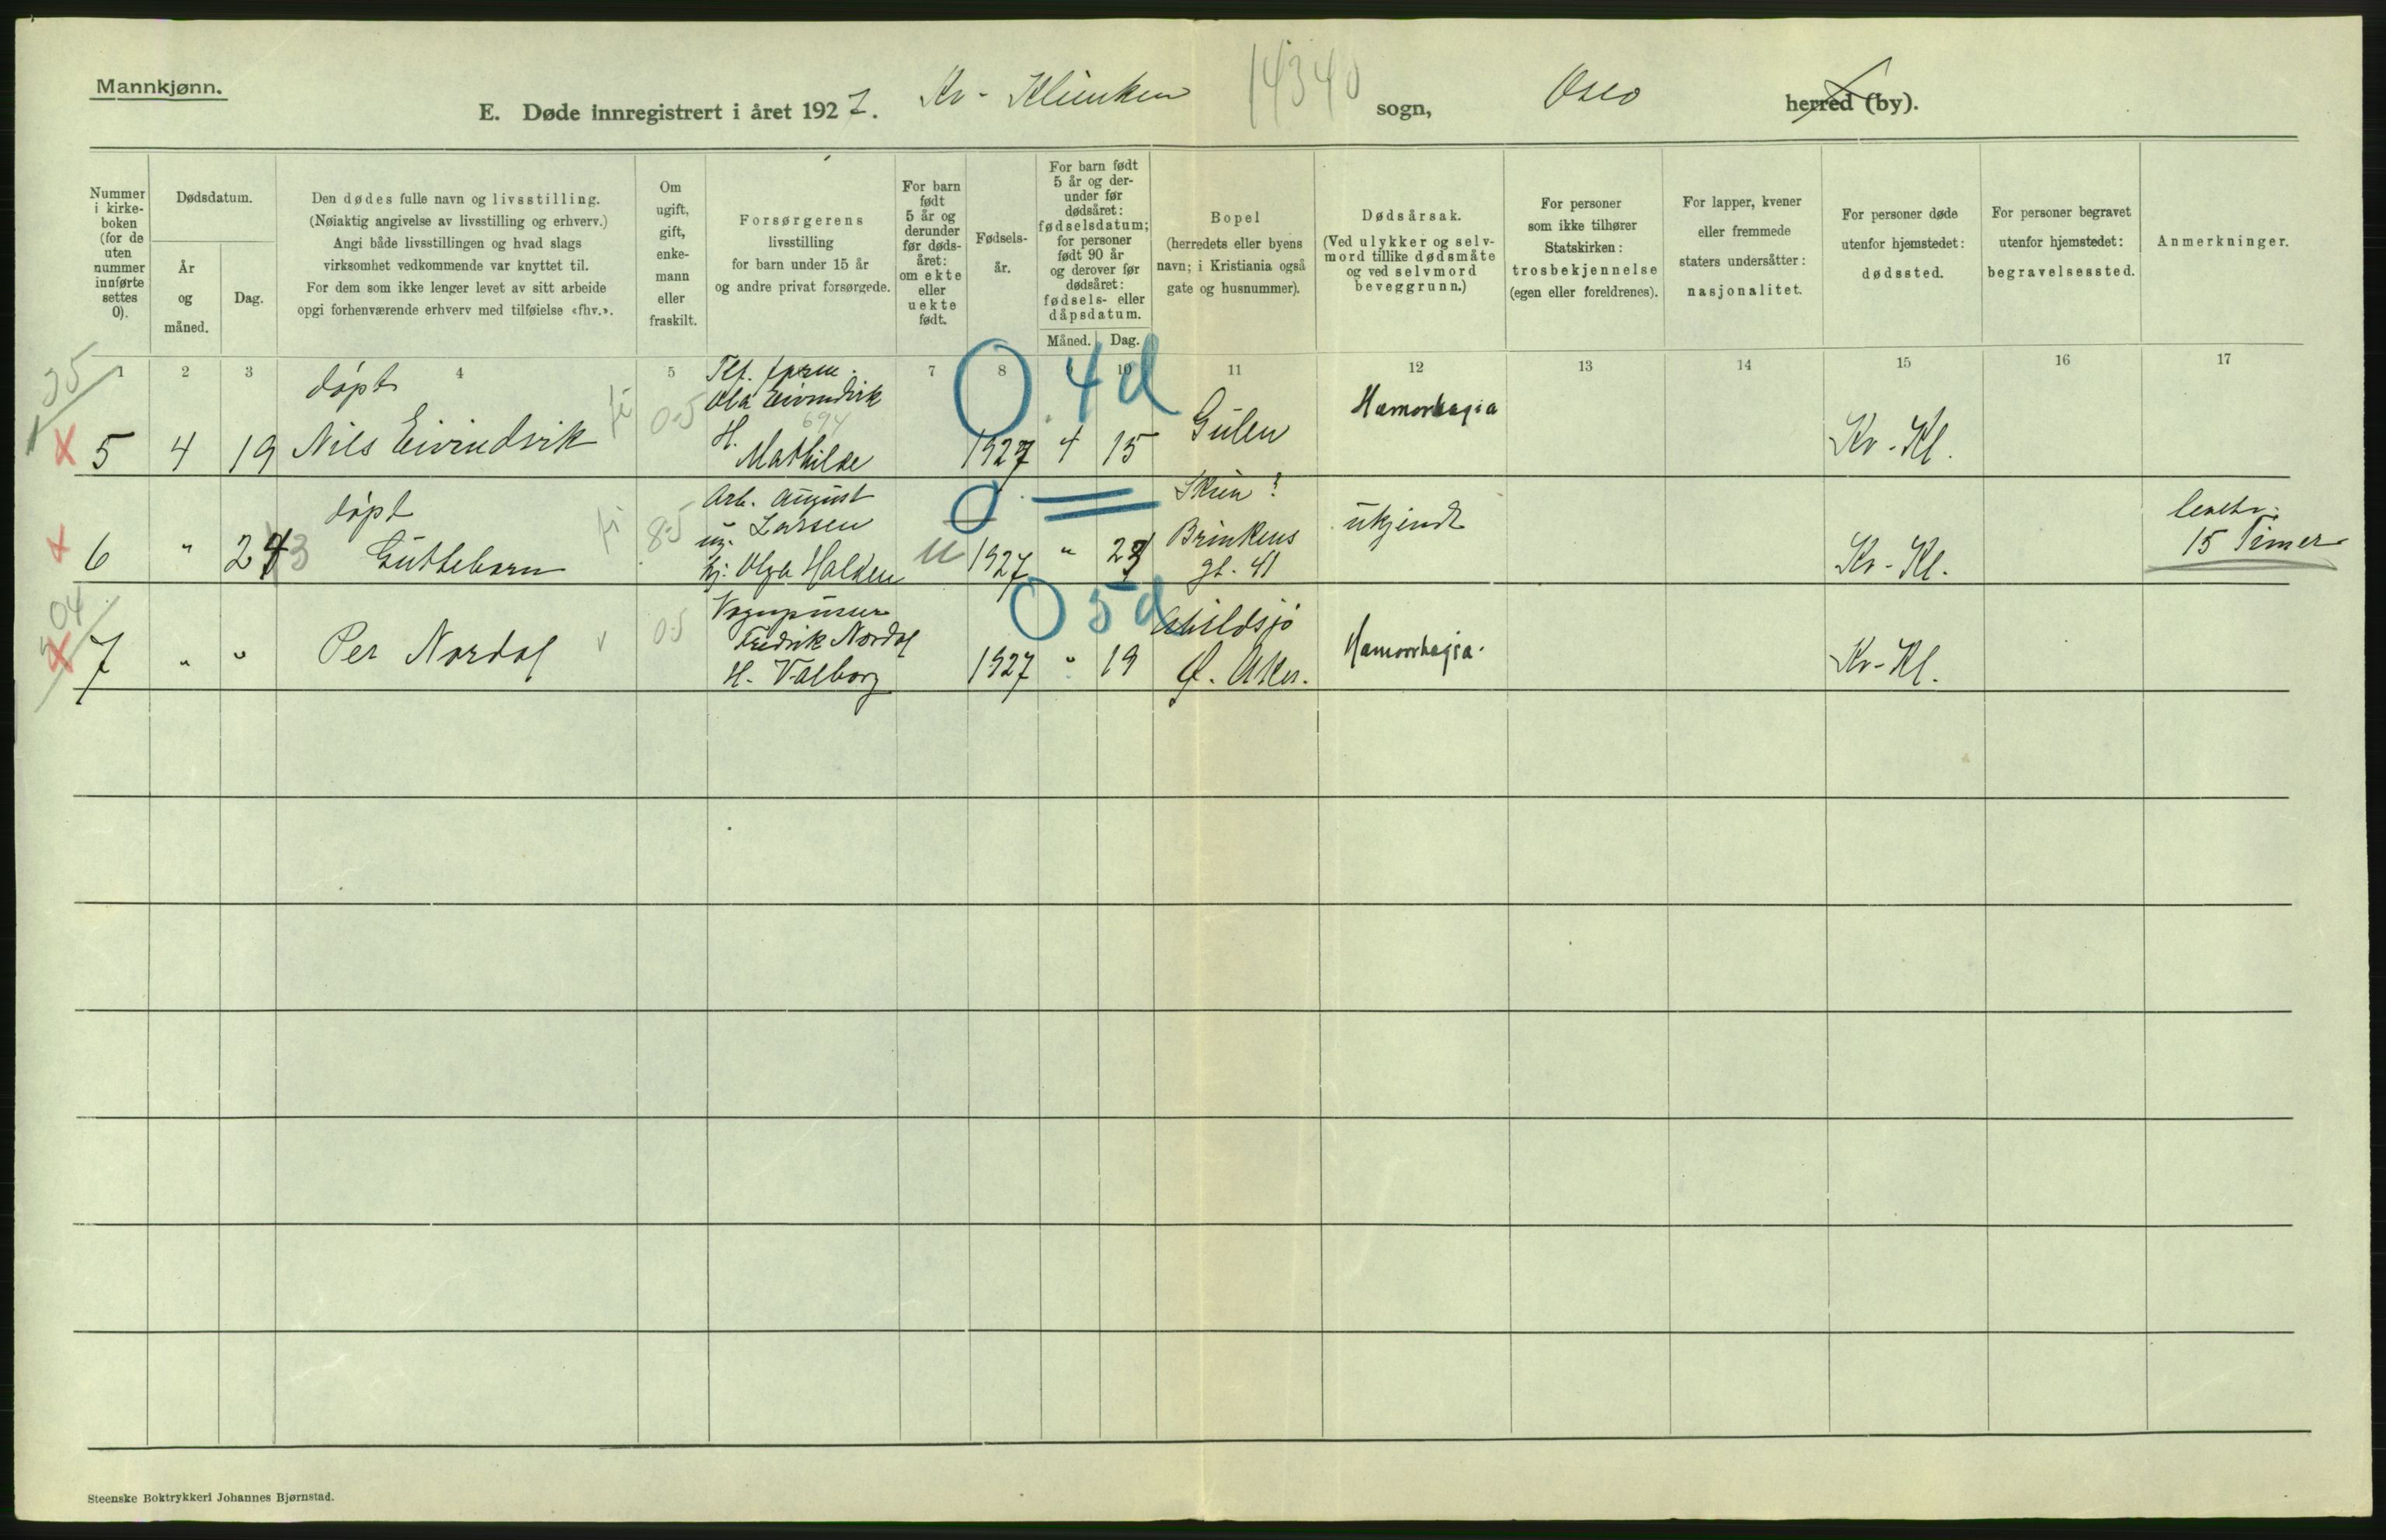 Mannkjønn.
E. Døde innregistrert i året 1927. Kv - Klinken 14340 sogn, Oslo herred (by).
Nummer i kirke- boken (for de uten nummer innførte settes 0).
Dødsdatum.
År og måned.
Dag.
Den dødes fulle navn og livsstilling.
(Nøiaktig angivelse av livsstilling og erhverv.)
Angi både livsstillingen og hvad slags
virksomhet vedkommende var knyttet til.
For dem som ikke lenger levet av sitt arbeide
opgi forhenværende erhverv med tilføielse «fhv.».
Om ugift, gift, enke- mann eller fraskilt.
Forsørgerens
livsstilling
for barn under 15 år
og andre privat forsørgede.
For barn født 5 år og derunder før døds- året: om ekte eller uekte født.
Fødsels- år.
For barn født 5 år og der- under før dødsåret: fødselsdatum; for personer født 90 år og derover før dødsåret: fødsels- eller dåpsdatum.
Måned. Dag.
Bopel
(herredets eller byens
navn; i Kristiania også
gate og husnummer).
Dødsårsak.
(Ved ulykker og selv-
mord tillike dødsmåte
og ved selvmord
beveggrunn.)
For personer
som ikke tilhører
Statskirken:
trosbekjennelse
(egen eller foreldrenes).
For lapper, kvener
eller fremmede
staters undersåtter:
nasjonalitet.
For personer døde
utenfor hjemstedet:
dødssted.
For personer begravet
utenfor hjemstedet:
begravelsessted.
Anmerkninger.
1 2 3 4 5 7 8 10 11 12 13 14 15 16 17
døpt
5 4 19 Nils Eivindvik
Ola Eivindvik
694
H.
Mathilde
0 4d
1927 4 15
Gulen
Hæmorhagia
Kv - Kl.
døpt
6 " 24 3 Guttebarn
85
Arb. August
ug. Larssen
hj. Olga Halden
u
0
1927 " 23
Skien ?
Brinkens
gt. 41
ukjendt
Kv - Kl.
levet
15 Timer
04
7 " " Per Nordal
v
05
Vognpusser
Fredrik Nordal
H. Valborg
0 5d
1927 " 19
Abildsjø
Ø. Aker.
Hæmorrhagia.
Kv - Kl.
Steenske Boktrykkeri Johannes Bjørnstad.